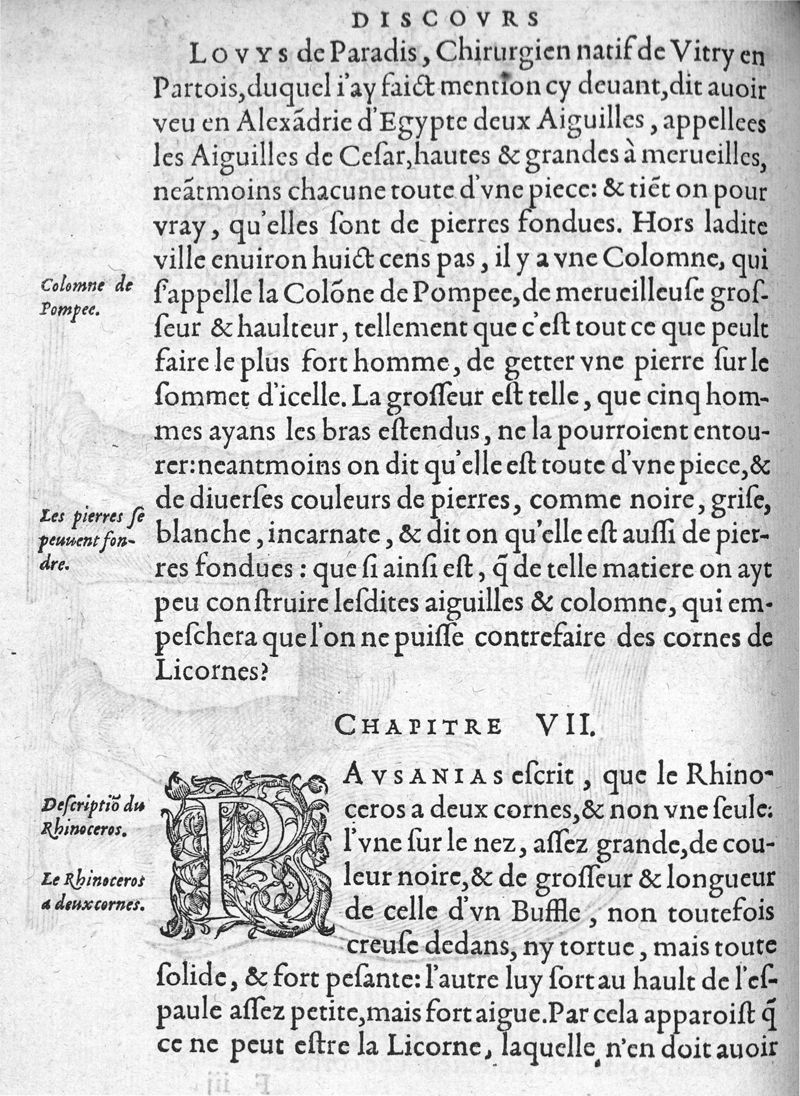 DISCOVRS
LOVYS de Paradis, Chirurgien natif de Vitry en
Partois, duquel i'ay faict mention cy deuant, dit auoir
veu en Alexãdrie d'Egypte deux Aiguilles, appellees
les Aiguilles de Cesar, hautes & grandes à merueilles,
neãtmoins chacune toute d'vne piece: & tiẽt on pour
vray, qu'elles ſont de pierres fondues. Hors ladite
ville enuiron huict cens pas, il y a vne Colomne, qui
Colomne de
Pompee.
ſ'appelle la Colõne de Pompee, de merueilleuſe groſ-
ſeur & haulteur, tellement que c'eſt tout ce que peult
faire le plus fort homme, de getter vne pierre ſur le
ſommet d'icelle. La groſſeur eſt telle, que cinq hom-
mes ayans les bras eſtendus, ne la pourroient entou-
rer: neantmoins on dit qu'elle eſt toute d'vne piece, &
de diuerſes couleurs de pierres, comme noire, griſe,
Les pierres ſe
peuuent fon-
dre.
blanche, incarnate, & dit on qu'elle eſt auſſi de pier-
res fondues: que ſi ainſi eſt, q̃ de telle matiere on ayt
peu conſtruire leſdites aiguilles & colomne, qui em-
peſchera que l'on ne puiſſe contrefaire des cornes de
Licornes?
CHAPITRE VII.
PAVSANIAS eſcrit, que le Rhino-
Deſcriptiõ du
Rhinoceros.
ceros a deux cornes, & non vne ſeule:
l'vne ſur le nez, aſſez grande, de cou-
Le Rhinoceros
a deux cornes.
leur noire, & de groſſeur & longueur
de celle d'vn Buffle, non toutefois
creuſe dedans, ny tortue, mais toute
ſolide, & fort peſante: l'autre luy ſort au hault de l'eſ-
paule aſſez petite, mais fort aigue. Par cela apparoiſt q̃
ce ne peut eſtre la Licorne, laquelle n'en doit auoir
F iij